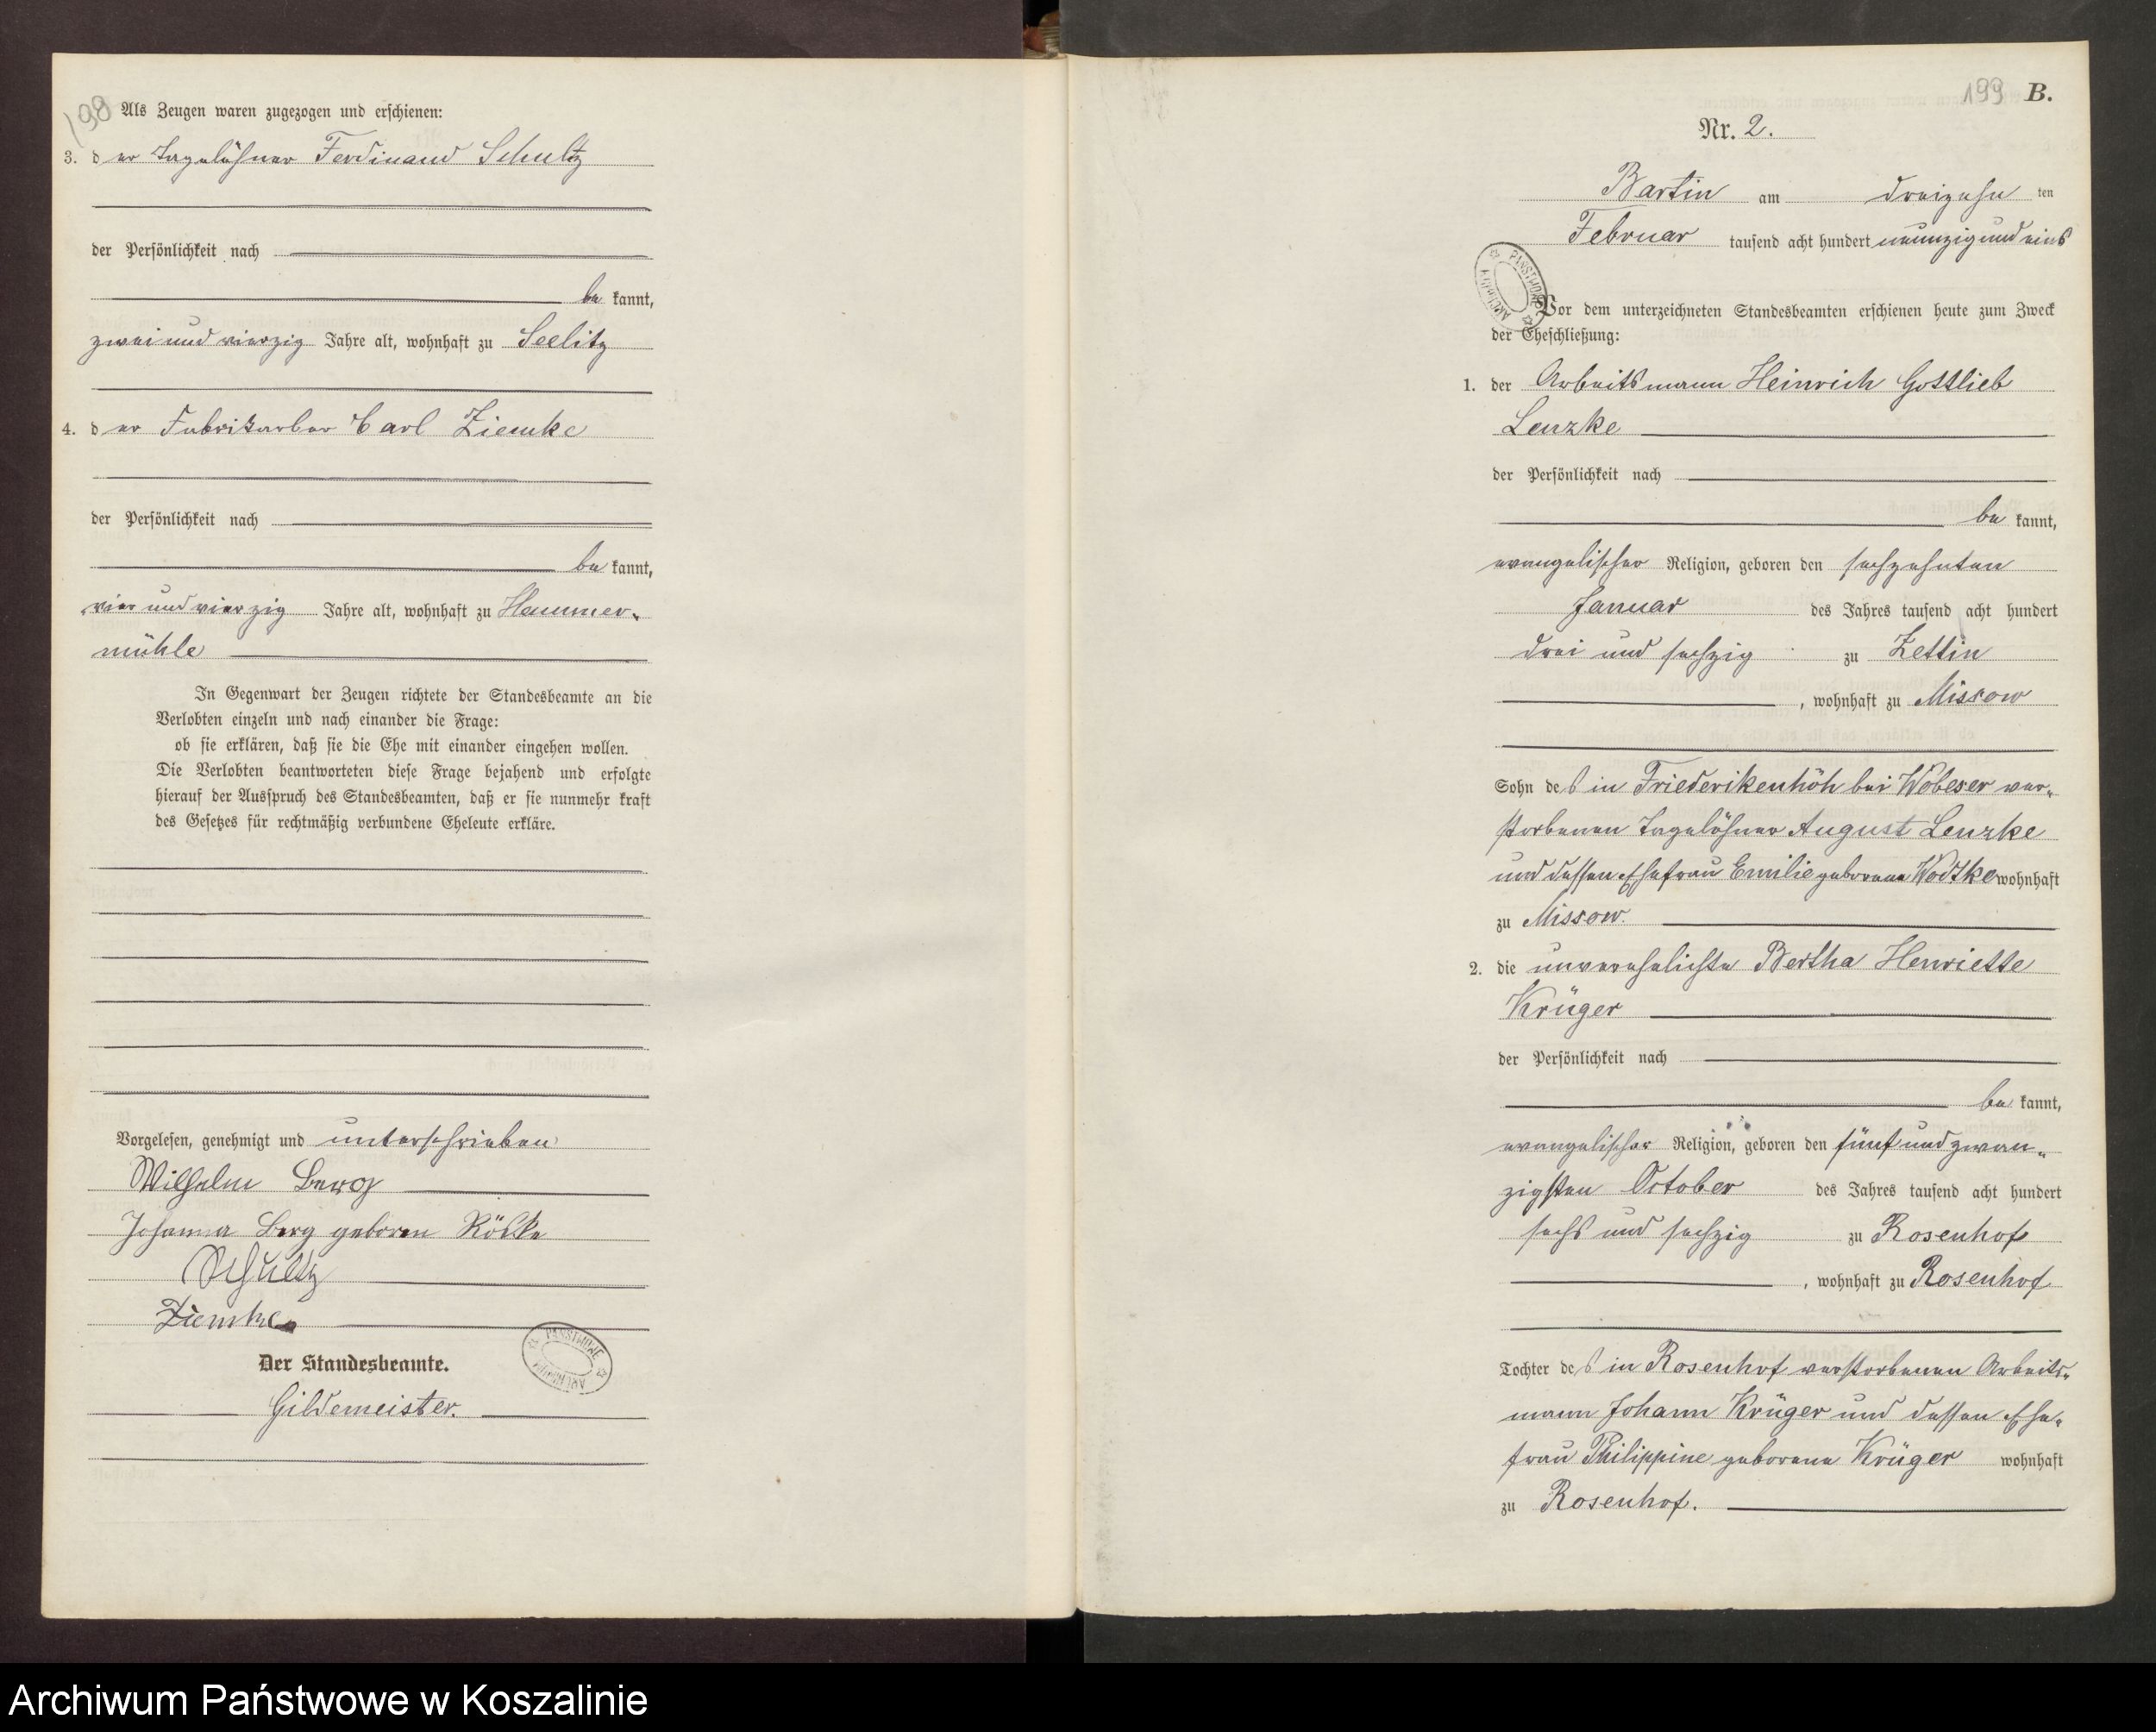 198
Als Zeugen waren zugezogen und erschienen:
3. der Tagelöhner Ferdinand Schultz
der Persönlichkeit nach
bekannt,
zwei und vierzig Jahre alt, wohnhaft zu Seelitz
4. der Fabrikarber Carl Ziemke
der Persönlichkeit nach
bekannt,
vier und vierzig Jahre alt, wohnhaft zu Hammer-
mühle
In Gegenwart der Zeugen richtete der Standesbeamte an die
Verlobten einzeln und nach einander die Frage:
ob sie erklären, daß sie die Ehe mit einander eingehen wollen.
Die Verlobten beantworteten diese Frage bejahend und erfolgte
hierauf der Ausspruch des Standesbeamten, daß er sie nunmehr kraft
des Gesetzes für rechtmäßig verbundene Eheleute erkläre.
Vorgelesen, genehmigt und unterschrieben
Wilhelm Berg
Johanna Berg geboren
Schultz
Ziemke
Der Standesbeamte.
Gildemeister.
ARCHIWUM PAŃSTWOWE
199 B.
Nr. 2.
Bartin am dreizehn ten
Februar tausend acht hundert neunzig und eins
ARCHIWUM PAŃSTWOWE
Vor dem unterzeichneten Standesbeamten erschienen heute zum Zweck
der Eheschließung:
1. der Arbeitsmann Heinrich Gottlieb
Lenzke
der Persönlichkeit nach
bekannt,
evangelischer Religion, geboren den sechzehnten
Januar des Jahres tausend acht hundert
drei und sechzig zu Zettin
, wohnhaft zu Missow
Sohn des in Friederikenhöh bei Wobeser ver-
storbenen Tagelöhner August Lenzke
und dessen Ehefrau Emilie geborene Wodtke wohnhaft
zu Missow.
2. die unverehelichte Bertha Henriette
Krüger
der Persönlichkeit nach
bekannt,
evangelischer Religion, geboren den fünf und zwan-
zigsten October des Jahres tausend acht hundert
sechs und sechzig zu Rosenhof
, wohnhaft zu Rosenhof
Tochter des in Rosenhof verstorbenen Arbeits-
mann Johann Krüger und dessen Ehe-
frau Philippine geborene Krüger wohnhaft
zu Rosenhof.
Archiwum Państwowe w Koszalinie